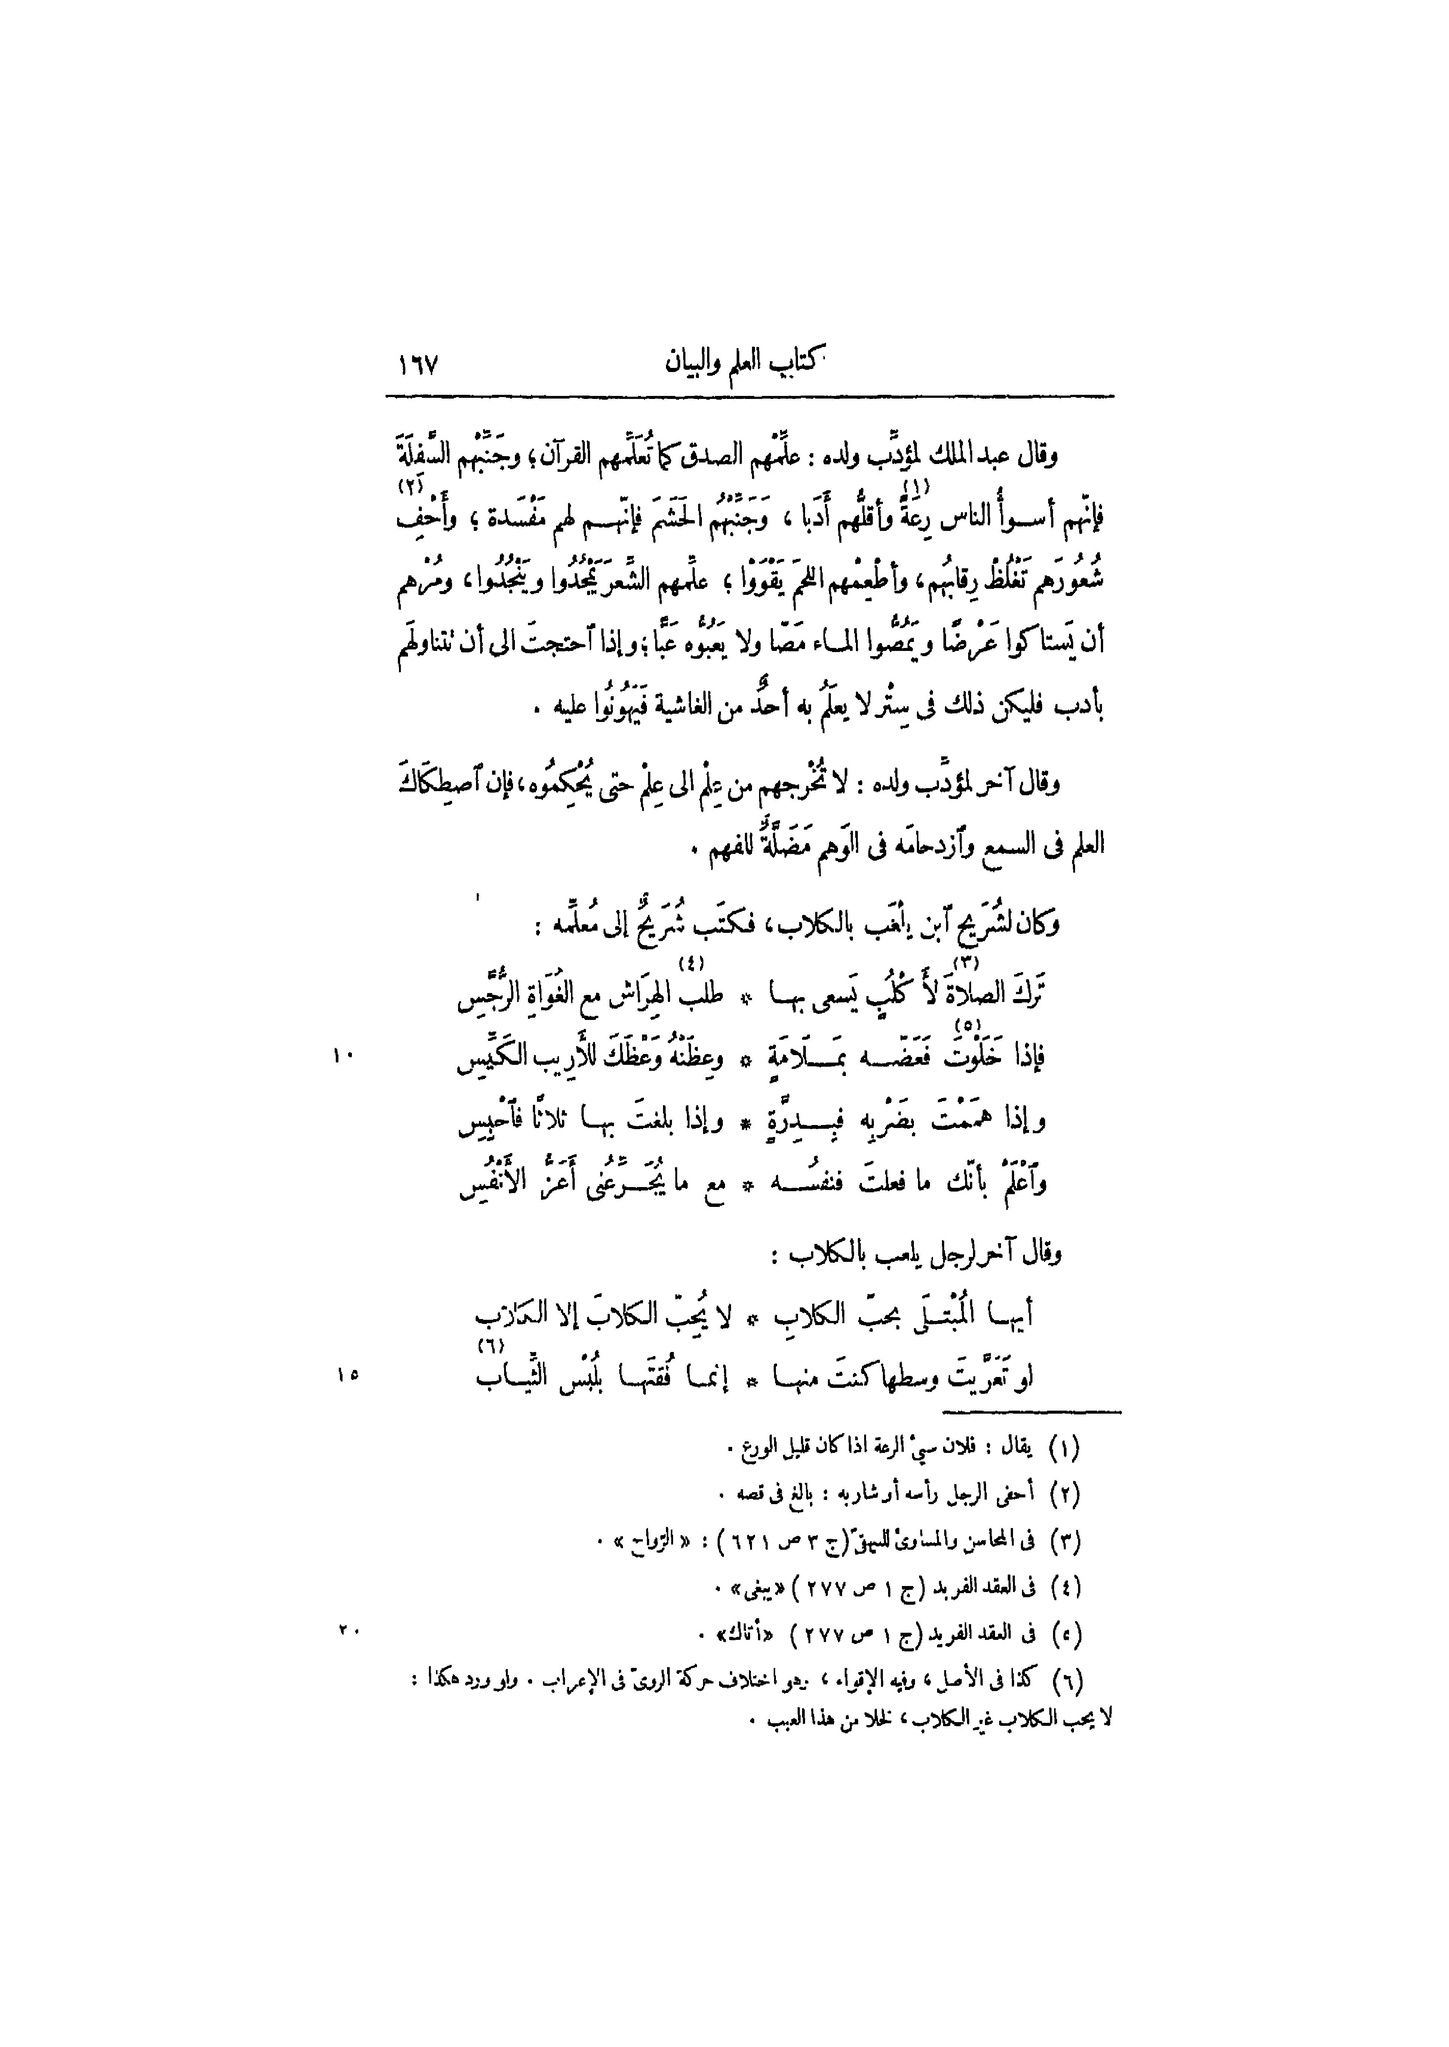 كتاب العلم والبيان ١٦٧
وقال عبد الملك لمؤدِّب ولده : علِّمْهم الصدق كما تُعَلِّمهم القرآن؛ وجَنِّبْهم السَّفِلَةَ
فإنّهم أسوأُ الناس رِعَةً (١) وأقلُّهم أَدَبا ، وَجَنِّبْهُم الحَشَمَ فإنّهم لهم مَفْسَدة ؛ وأَحْفِ (٢)
شُعُورَهم تَغْلُظْ رِقابُهم، وأطْعِمْهم اللحمَ يَقْوَوْا ؛ علِّمهم الشِّعرَ يَمْجُدُوا ويَنْجُدُوا، ومُرْهم
أن يَستاكوا عَرْضًا ويَمُصُّوا الماء مَصّا ولا يَعُبُّوه عَبًّا؛ وإذا ٱحتجتَ الى أن تتناولَهم
بأدب فليكن ذلك فى سِتْر لا يعلَمُ به أحدٌ من الغاشية فَيَهُونُوا عليه .
وقال آخر لمؤدِّب ولده : لا تُخْرجهم من عِلْم الى عِلْم حتى يُحْكِمُوه، فإن ٱصطِكَاكَ
العلم فى السمع وٱزدحامَه فى الوَهم مَضَلَّةٌ للفهم .
وكان لشُرَيح ٱبن يلعَب بالكلاب، فكتَب شُرَيحٌ إلى مُعلِّمه :
تَركَ الصلاةَ (٣) لأَكْلُبٍ يَسعى بها * طلب (٤) الهِرَاش مع الغُوَاةِ الرُّجَّسِ
١٠ فإذا خَلَوْتَ (٥) فَعَضّه بمَلَامَةٍ * وعِظَنْهُ وَعْظَكَ للأَرِيب الكَيِّسِ
وإذا هَممْتَ بضَرْبِه فبِدِرَّةٍ * وإذا بلغتَ بها ثلاثًا فٱحْبِسِ
وٱعْلَمْ بأنّك ما فعلتَ فنفسُه * مع ما يُجَرِّعُنى أَعَزُّ الأَنْفُسِ
وقال آخر لرجل يلعب بالكلاب :
أيها المُبْتلَى بحبّ الكلابِ * لا يُحِبّ الكلابَ إلا الكلاب
١٥ لو تَعَرَّيتَ وسطها كنتَ منها * إنما فُقتَها بلُبْس الثِّياب (٦)
(١) يقال : فلان سيئ الرعة اذا كان قليل الورع .
(٢) أحفى الرجل رأسه أو شاربه : بالغ فى قصه .
(٣) فى المحاسن والمساوئ للبيهقىّ (ج ٣ ص ٦٢١) : « الرّواح » .
(٤) فى العقد الفريد (ج ١ ص ٢٧٧) «يبغى» .
(٥) فى العقد الفريد (ج ١ ص ٢٧٧) «أتاك» . ٢٠
(٦) كذا فى الأصل ، وفيه الإقواء ، وهو اختلاف حركة الروىّ فى الإعراب . ولو ورد هكذا :
لا يحب الكلاب غير الكلاب ، لخلا من هذا العيب .